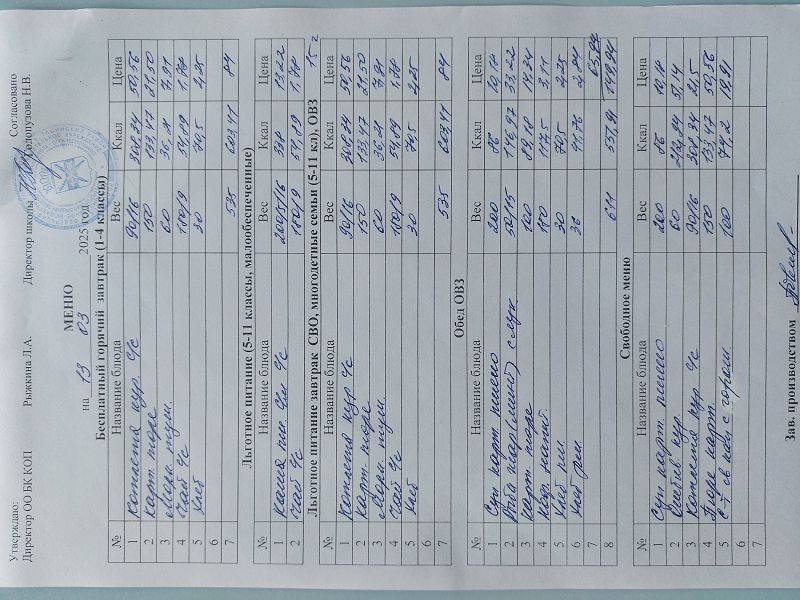 Утверждаю: Согласовано
Директор ОО БК КОП Рыжкина Л.А. Директор школы Холопузова Н.В.
МЕНЮ
на 13 03 2025 год
Бесплатный горячий завтрак (1-4 классы)
№ Название блюда Вес Ккал Цена
1 котлета кур. с/с 90/16 308,34 50,56
2 карт пюре 150 133,47 21,50
3 60 36,21 7,91
4 чай с/с 180/9 54,89 1,78
5 хлеб 30 70,5 2,25
6
7 535 603,41 84
Льготное питание (5-11 классы, малообеспеченные)
№ Название блюда Вес Ккал Цена
1 каша 200/5/16 334
2 чай с/с 180/9 54,89 1,78
Льготное питание завтрак СВО, многодетные семьи (5-11 кл), ОВЗ 15 г
№ Название блюда Вес Ккал Цена
1 котлета кур с/с 90/16 308,34 50,56
2 карт. пюре 150 133,47 21,50
3 60 36,21 7,91
4 чай с/с 180/9 54,89 1,78
5 хлеб 30 70,5 2,25
6
7 535 603,41 84
Обед ОВЗ
№ Название блюда Вес Ккал Цена
1 Суп карт пшено 200 86 10,18
2 Рыба 50/15 146,97 33,22
3 карт пюре 100 89,18 14,34
4 180 113,5 3,11
5 хлеб пш. 30 70,5 2,25
6 хлеб рж. 36 41,76 2,84
7 65,94
8 611 557,91 149,94
Свободное меню
№ Название блюда Вес Ккал Цена
1 Суп карт пшено 200 86 10,18
2 кур 60 212,84 51,14
3 котлета кур с/с 90/16 308,34
4 Пюре карт. 150 133,47
5 100 74,2 19,91
6
7
Зав. производством